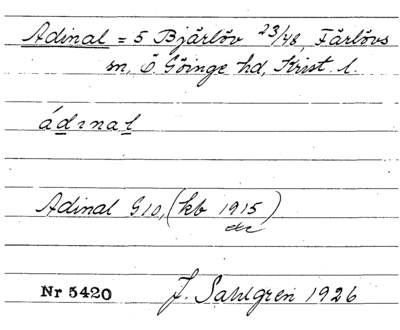 Adinal = 5 Bjärlöv 23/48, Färlövs
sn, Ö. Göinge hd, Krist. l.
ádınal
Adinal G10, (kb 1915)
Nr 5420
J. Sahlgren 1926